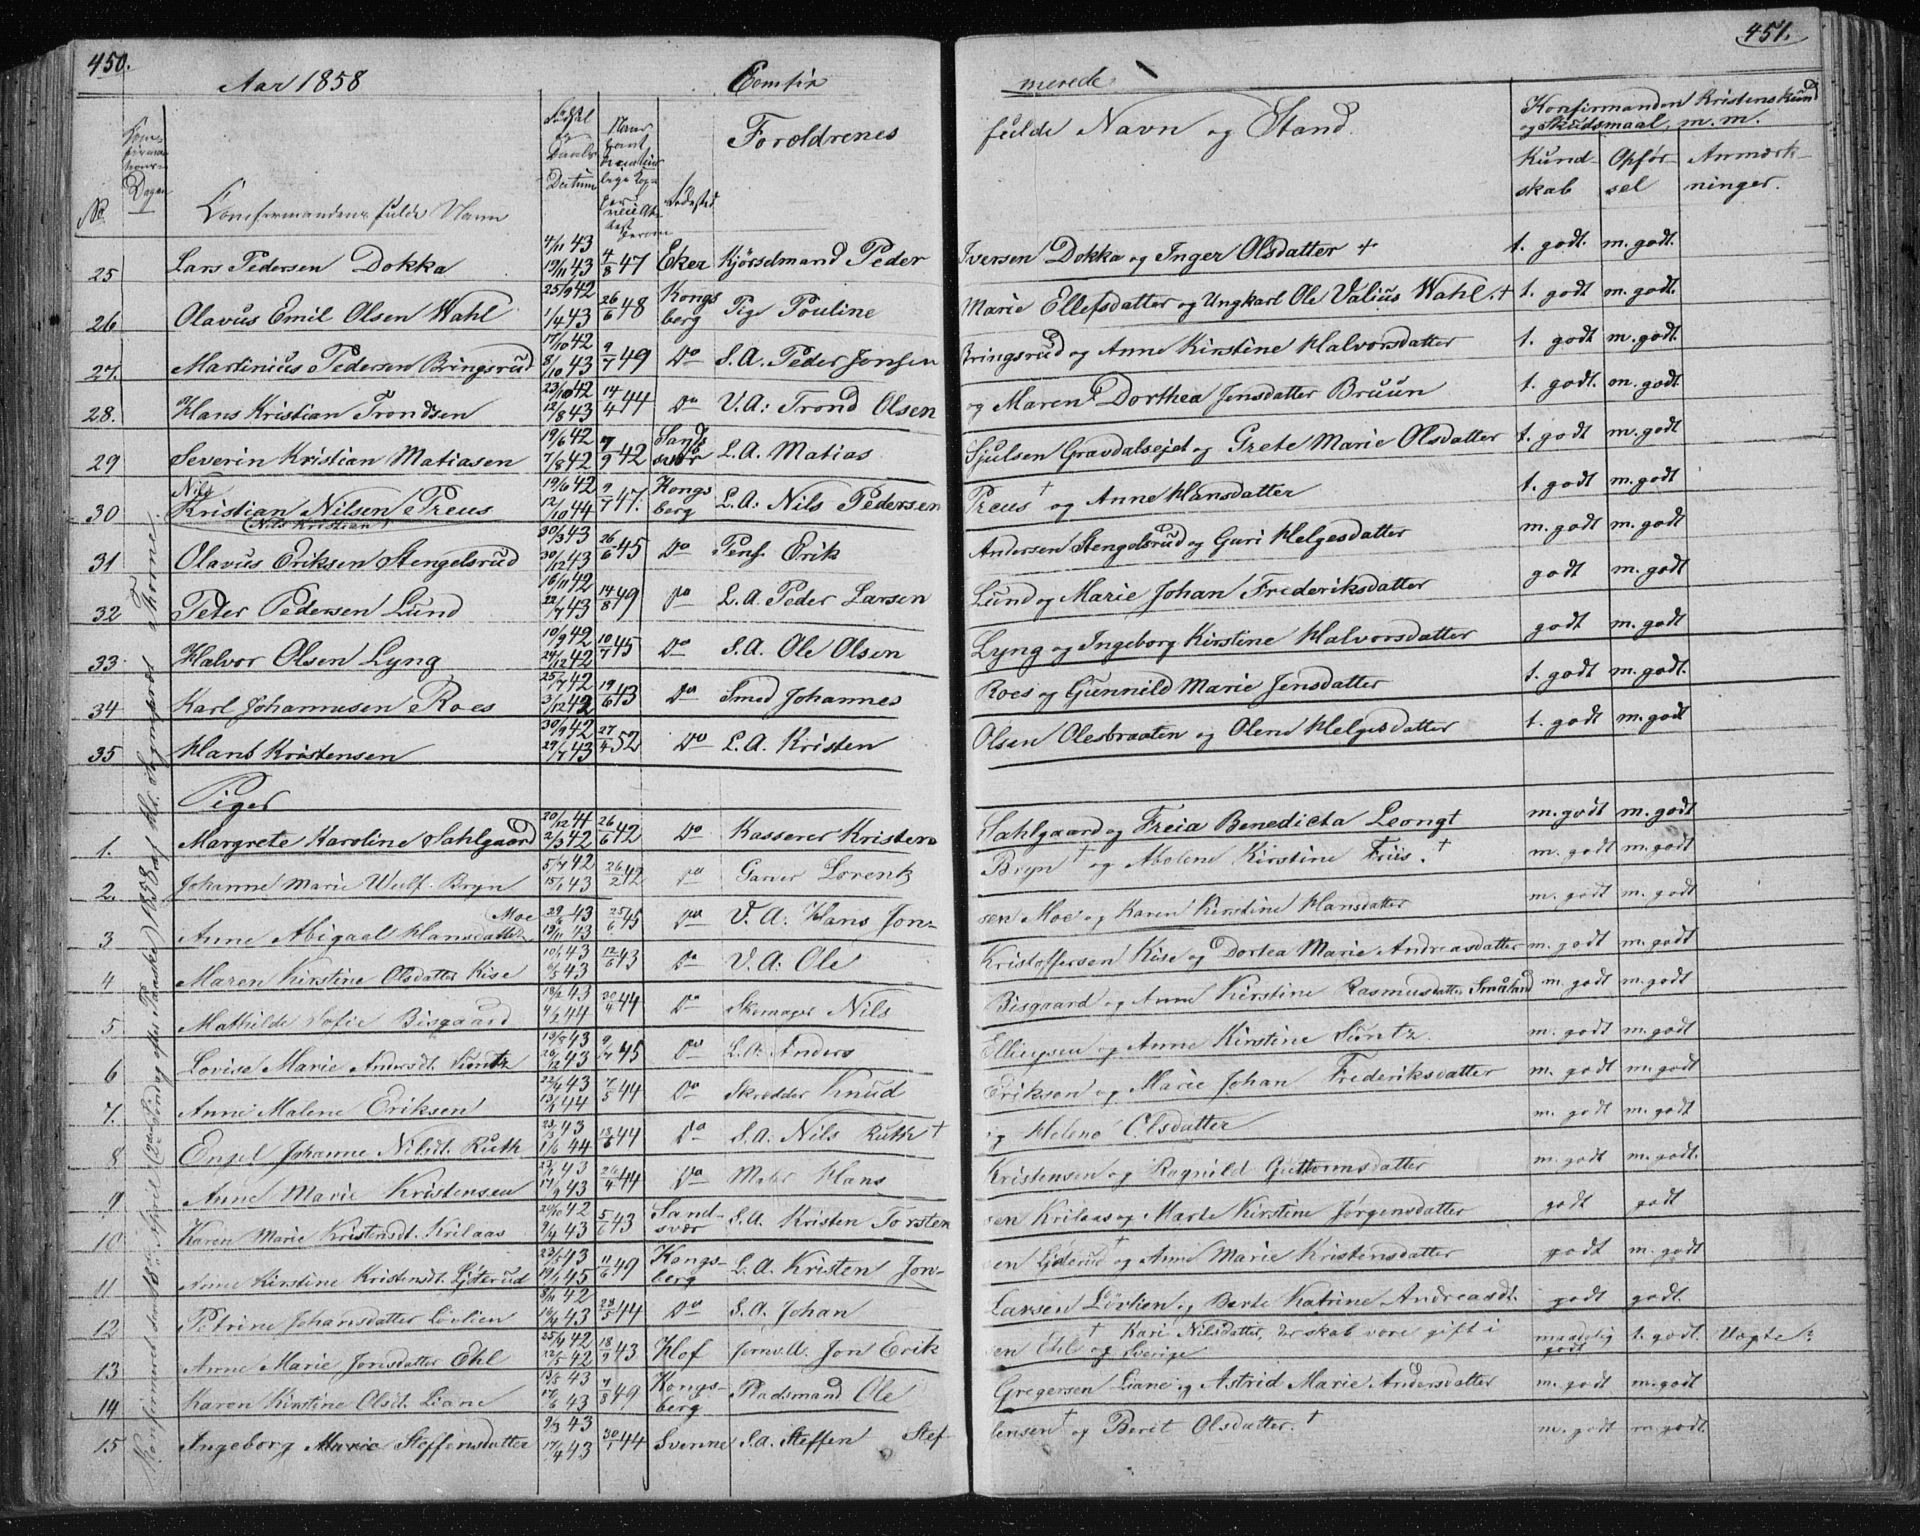 450.
451.
Aar 1858
Confir
merede
No
Dagen
Confirmandens fulde Navn
Datum
Fødested
Forældrenes
fulde Navn og Stand.
Konfirmanden Kristenskund
og Skudsmaal, m. m.
Kund- Opfør- Anmærk-
skab sel ninger.
25 Lars Pedersen Dokka 4/11 43 19/11 43 4/8 47 Eker Kjørselmand Peder Iversen Dokka og Inger Olsdatter + t. godt. m. godt.
26 Olavus Emil Olsen Wahl 25/9 42 1/4 43 26/6 48 Kongsberg Pige Pouline Marie Ellefsdatter og Ungkarl Ole Valius Wahl. + t. godt m. godt.
27. Martinius Pedersen Bringsrud 17/10 42 8/10 43 9/7 49 Do S. A. Peder Jonsen Bringsrud og Anne Kirstine Halvorsdatter t. godt m. godt.
28. Hans Kristian Trondsen 23/10 42 12/8 43 14/4 44 Do V. A: Trond Olsen og Maren Dorthea Jensdatter Bruun t. godt. m. godt
29 Severin Kristian Matiasen 19/6 42 7/8 42 7/9 42 Sandsvær L. A. Matias Sjulsen Gravdalsejet og Grete Marie Olsdatter t. godt m. godt.
30 Nils Kristian Nilsen Preus 19/6 42 12/10 44 9/7 47. Kongsberg L. A: Nils Pedersen Preus + og Anne Hansdatter t. godt m. godt
(Nils Kristian)
31 Olavus Eriksen Stengelsrud 30/3 43 30/12 43 26/6 45 Do Pens. Erik Andersen Stengelsrud og Guri Helgesdatter m. godt m. godt
32 Peter Pedersen Lund 16/11 42 22/7 43 14/8 49 Do L. A. Peder Larsen Lund og Marie Johan Frederiksdatter godt m. godt
33. Halvor Olsen Lyng 10/9 42 24/12 42 10/7 45 Do S. A. Ole Olsen Lyng og Ingeborg Kirstine Halvorsdatter godt m. godt
34 Karl Johannesen Roes 25/7 42 3/12 42 19/6 43 Do Smed Johannes Roes og Gunnild Marie Jensdatter t. godt m. godt.
35 Hans Kristensen 30/9 42 29/7 43 27/4 52 Do L. A. Kristen Olsen Olesbraaten og Olene Helgesdatter t. godt m. godt
Piger
1. Margrete Karoline Sahlgaard 20/12 41 2/3 42 26/6 42 Do Kasserer Kristen Sahlgaard og Freia Benedicta Leongt m. godt m. godt
2. Johanne Marie Wulf. Bryn 5/7 42 15/1 43 26/2 42 Do Garver Lorentz Bryn + og Malene Kirstine Friis. + m. godt m. godt
3 Anne Abigael Hansdatter Moe 43 43 25/6 45 Do V. A: Hans Jon-sen Moe og Karen Kirstine Hansdatter m. godt m. godt
4 Maren Kirstine Olsdatter Kise 10/1 43 43 12/6 43 Do V. A: Ole Kristoffersen Kise og Dortea Marie Andreasdatter m. godt m. godt
5 Mathilde Sofie Bisgaard 43 44 44 Do Skomager Nils Bisgaard og Anne Kirstine Rasmusdatter Småland m. godt m. godt
6 Lovise Marie Andersdt. Suntz 43 43 45 Do L. A: Anders Ellingsen og Anne Kirstine Suntz m. godt m. godt
7. Anne Malene Eriksen 43 44 44 Do Skrædder Knud Eriksen og Marie Johan Frederiksdatter m. godt m. godt
8 Engel Johanne Nilsdt. Ruth 43 1/6 44 44 Do S. A. Nils Ruth + og Helene Olsdatter m. godt m. godt
9 Anne Marie Kristensen 43 43 44 Do Hans Kristensen og Ragnild Guttormsdatter m. godt m. godt.
10 Karen Marie Kristensdt. Krilaas 42 43 5/6 43 Sandsvær S. A. Kristen Torsten-sen Krilaas og Marte Kirstine Jørgensdatter godt godt
11 Anne Kirstine Kristensdt. Ljøterud 43 45 11/6 49 Kongsberg L. A. Kristen Jon-sen Ljøterud + og Anne Marie Kristensdatter godt m. godt
12 Petrine Johansdatter Lövlien 42 43 44 Do S. A. Johan Larsen Lövlien og Berte Katrine Andreasdt. godt godt.
13 Anne Marie Jonsdatter Ehl 42 42 18/9 43 Hof Jernv. A. Jon Erik-sen Ehl + og Kari Nilsdatter, der skab være gift i Sverige maadelig godt t. godt. Uægte?
14 Karen Kirstine Olsdt. Liane 43 43 7/8 49 Kongsberg Pladsmand Ole Gregersen Liane og Astrid Marie Andersdatter m. godt m. godt
15 Ingeborg Marie Steffensdatter 43 17/4 43 44 Svenne S. A. Steffen Stef-fensen + og Berit Olsdatter. + m. godt m. godt.
Konfirmeret den 18de April (2den Søndag efter Paaske) 1858 af Hr. Sognepræst Thorne.